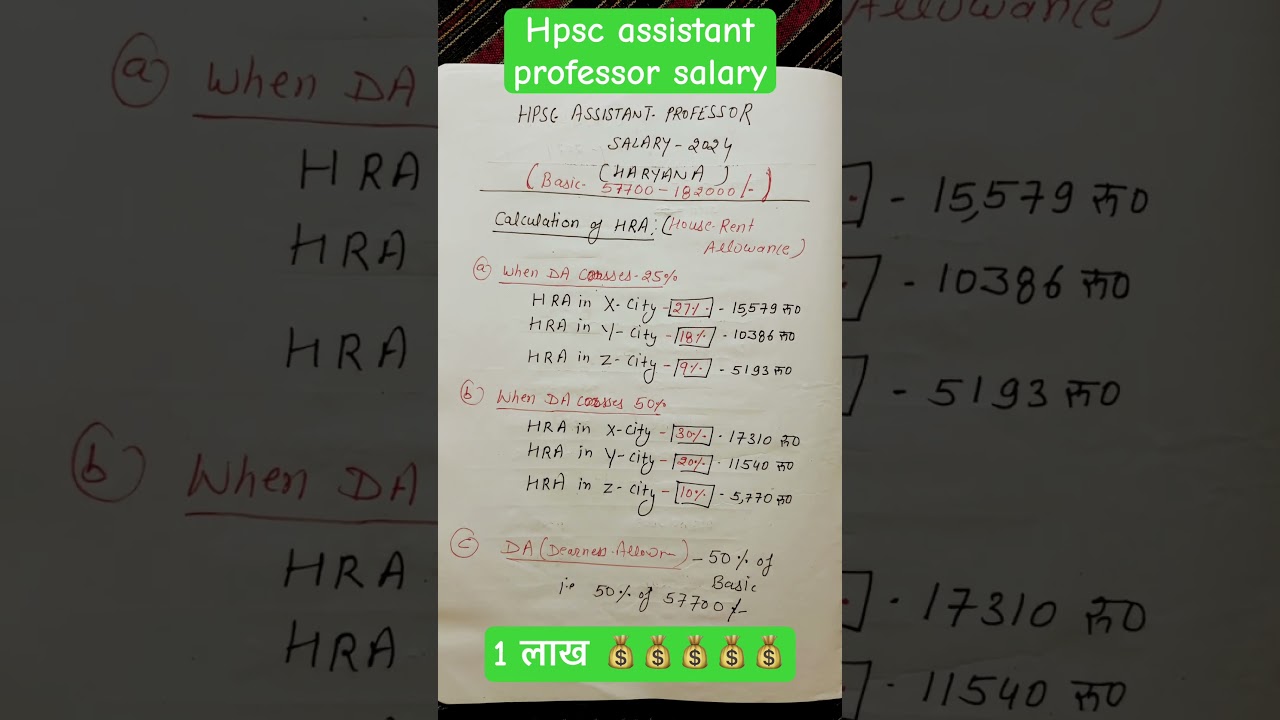 Hpsc assistant
professor salary
HPSC ASSISTANT. PROFESSOR
SALARY - 2024
(HARYANA)
(Basic- 57700-182000/-)
Calculation of HRA: (House-Rent
Allowance)
(a) When DA crosses-25%
HRA in X-City - 27% - 15,579 रू0
HRA in Y-City - 18% - 10386 रू0
HRA in Z-City - 9% - 5193 रू0
(b) When DA crosses 50%
HRA in X-City - 30% - 17310 रू0
HRA in Y-City - 20% - 11540 रू0
HRA in Z-City - 10% - 5,770 रू0
(c) DA (Dearness-Allown-) - 50% of
Basic
i.e 50% of 57700/-
1 लाख 💰💰💰💰💰